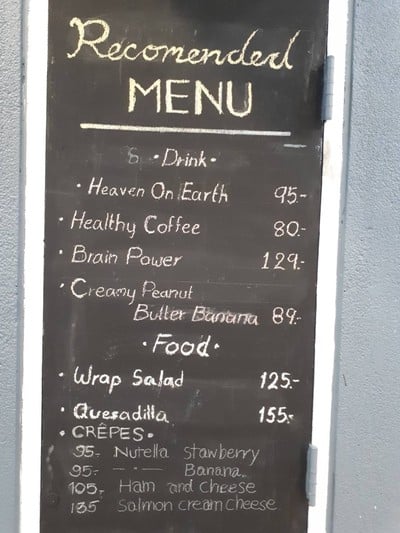 Recomended
MENU
• Drink •
• Heaven On Earth 95.-
• Healthy Coffee 80.-
• Brain Power 129.-
• Creamy Peanut
Butter Banana 89.-
• Food •
• Wrap Salad 125.-
• Quesadilla 155.-
• CRÊPES •
95- Nutella stawberry
95- —·— Banana
105- Ham and cheese
135 Salmon cream cheese